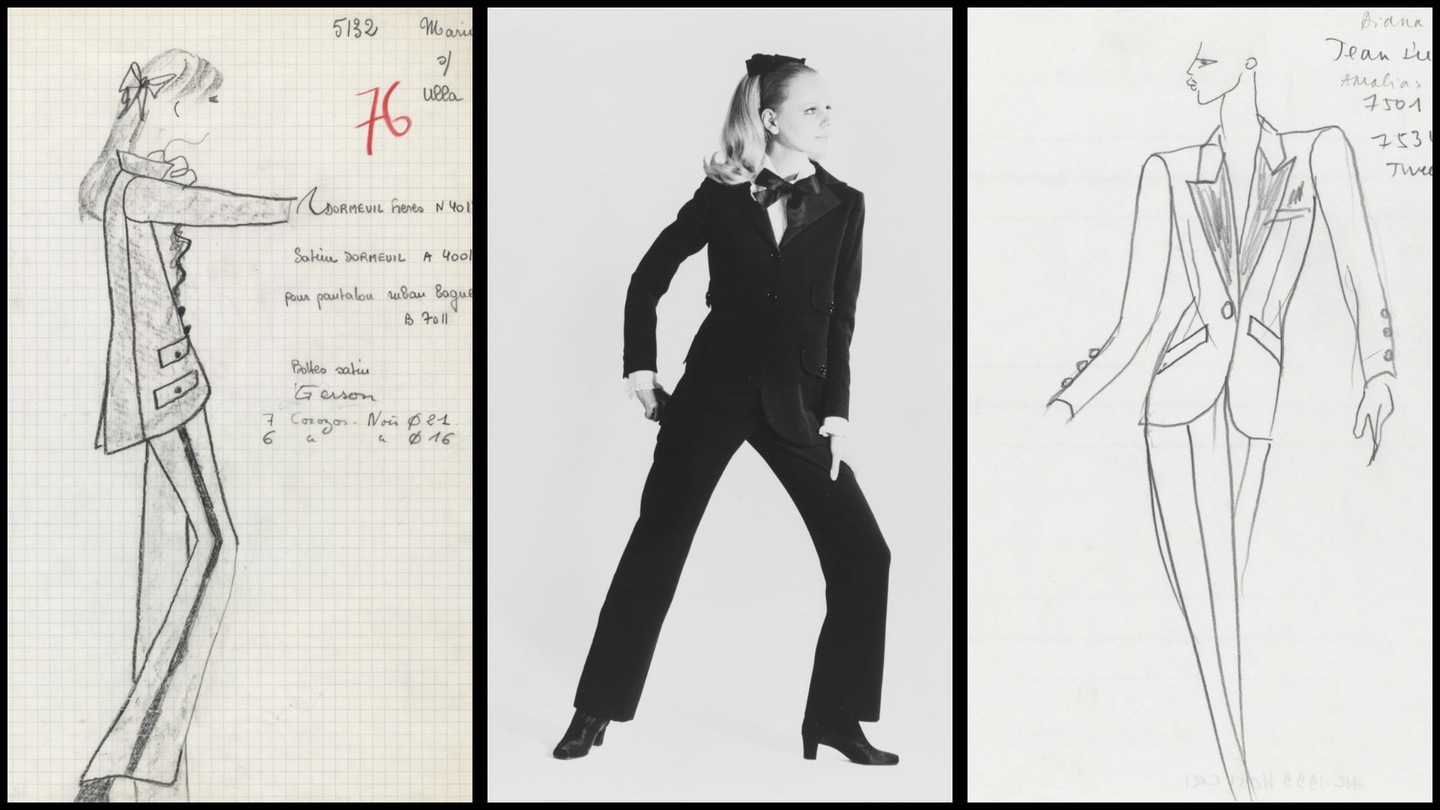 5132 Marie
s/
Ulla
76
DORMEUIL frères N 401
Satin DORMEUIL A 4001
pour pantalon ruban
B 7011
Bottes satin
Gerson
7 Corozos Noir Ø 21
6 " " Ø 16
Diana
Jean
7501
753
Twee